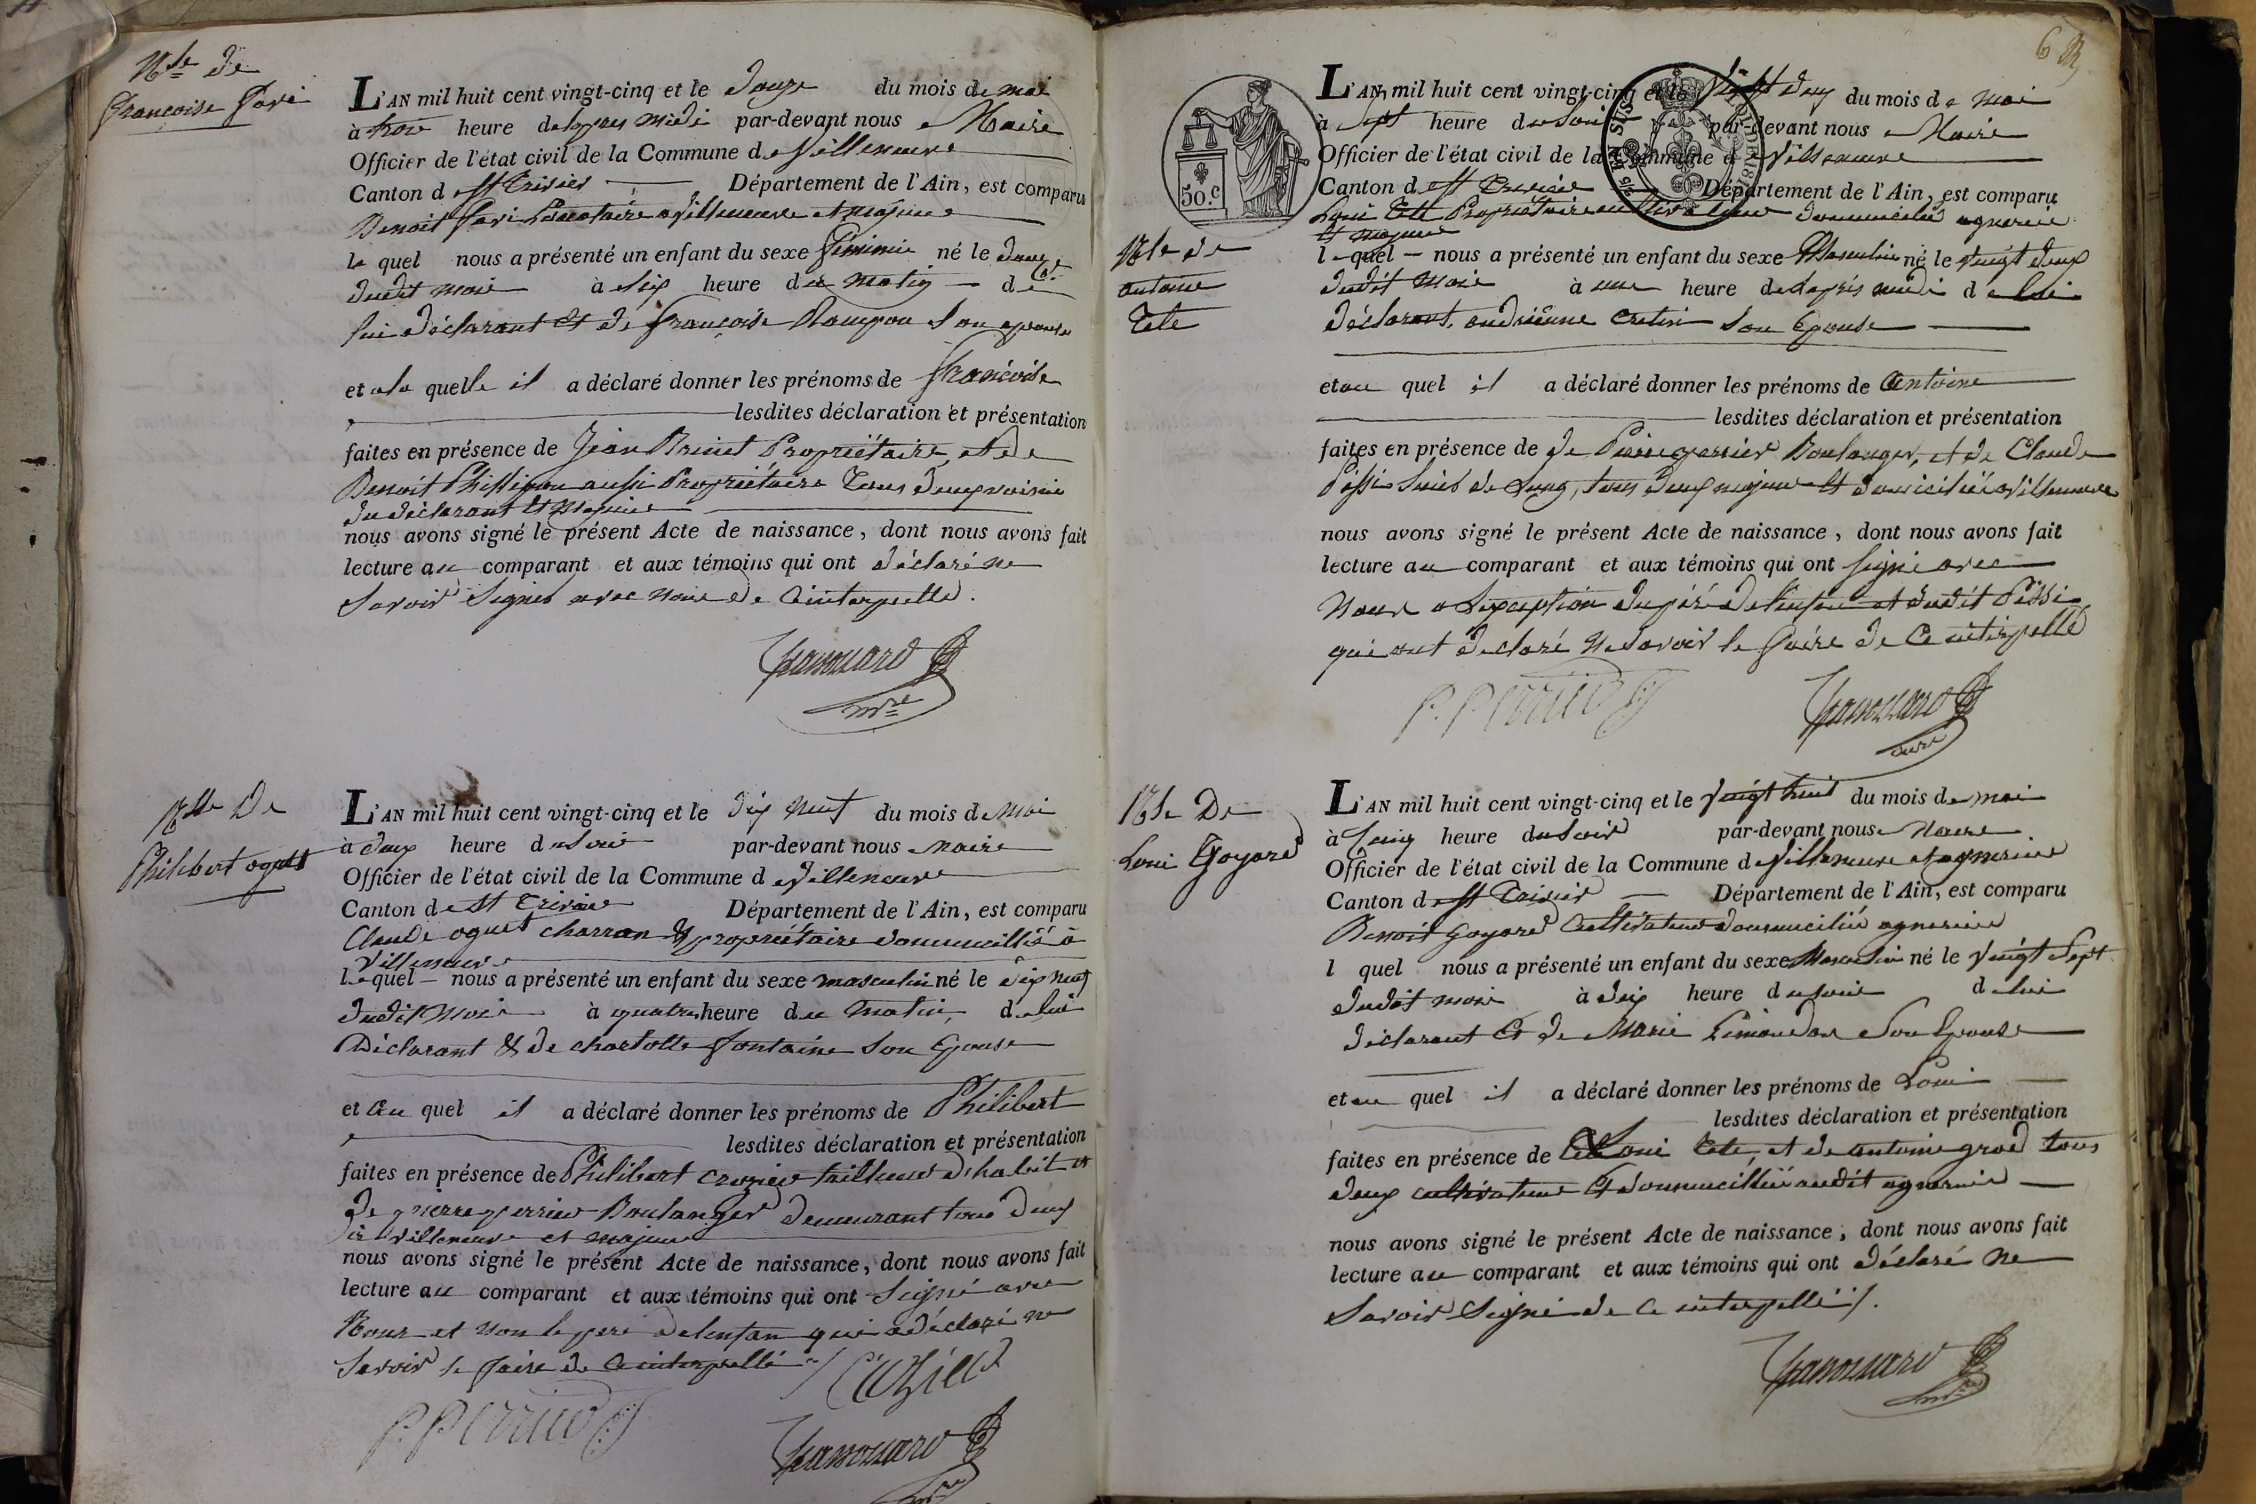 Nce de
Françoise Pari
L'AN mil huit cent vingt-cinq et le douze du mois de mai
à trois heure de après midi par-devant nous Maire
Officier de l'état civil de la Commune de Villeneuve
Canton de St Trivier Département de l'Ain, est comparu
Benoit Locataire a Villeneuve et majeur
le quel nous a présenté un enfant du sexe féminin né le douze
dudit mois à six heure du matin de
lui déclarant et de françoise son epouse
et a la quelle il a déclaré donner les prénoms de françoise
lesdites déclaration et présentation
faites en présence de Jean Brinet Propriétaire, et de
Benoit Philippon aussi Propriétaire Tous deux voisins
du déclarant et Majeurs
nous avons signé le présent Acte de naissance, dont nous avons fait
lecture au comparant et aux témoins qui ont déclaré ne
Savoir Signer avec Nous de Ce interpellé.
mre
Nce De
Philibert oguet
L'AN mil huit cent vingt-cinq et le dix neuf du mois de Mai
à deux heure du Soir par-devant nous maire
Officier de l'état civil de la Commune de Villeneuve
Canton de St Trivier Département de l'Ain, est comparu
Claude oguet charron & propriétaire domicillié à
Villeneuve
le quel nous a présenté un enfant du sexe masculin né le dix neuf
dudit Mois à quatre heure du Matin, de lui
Déclarant & de charlotte fontaine Son Epouse
et au quel il a déclaré donner les prénoms de Philibert
lesdites déclaration et présentation
faites en présence de Philibert crozier tailleur d'habit et
de pierre perrier Boulanger demeurant tous deux
à Villeneuve et majeur
nous avons signé le présent Acte de naissance, dont nous avons fait
lecture au comparant et aux témoins qui ont Signé avec
Nous et non le pere de lenfan qui a déclaré ne
Savoir le faire de Ce interpellé
P. Perrier
6
50.C
L'AN mil huit cent vingt-cinq et le Vingt deux du mois de Mai
à Sept heure du Soir par-devant nous Maire
Officier de l'état civil de la Commune de Villeneuve
Canton de St Trivier Département de l'Ain, est comparu
Loui Tete Propriétaire cultivateur domicilié agnerin
et majeur
Nce de
antoine
Tete
le quel nous a présenté un enfant du sexe Masculin né le vingt deux
dudit Mois à une heure de daprés midi de lui
déclarant, andriénne cretin Son Epouse
et au quel il a déclaré donner les prénoms de Antoine
lesdites déclaration et présentation
faites en présence de de Pierre perrier Boulanger, et de Claude
tous deux majeur et domicilié a Villeneuve
nous avons signé le présent Acte de naissance, dont nous avons fait
lecture au comparant et aux témoins qui ont Signé avec
Nous a Lexception du pére de lenfan et dudit
qui ont déclaré Ne Savoir le faire de Ce interpellé
P. Perrier
Nce De
Loui Goyard
L'AN mil huit cent vingt-cinq et le Vingt huit du mois de mai
à Cinq heure du Soir par-devant nous Maire
Officier de l'état civil de la Commune de Villeneuve et agnerin
Canton de St Trivier Département de l'Ain, est comparu
Benoit Goyard Cultivateur domicilié agnerin
l quel nous a présenté un enfant du sexe Masculin né le Vingt Sept
dudit mois à dix heure du soir de lui
déclarant Et de Marie Limandas Son Epouse
et au quel il a déclaré donner les prénoms de Loui
lesdites déclaration et présentation
faites en présence de Loui Tete, et de antoine tous
deux cultivateur Et domicillié audit agnerin
nous avons signé le présent Acte de naissance, dont nous avons fait
lecture au comparant et aux témoins qui ont déclaré ne
Savoir Signé de Ce interpellé